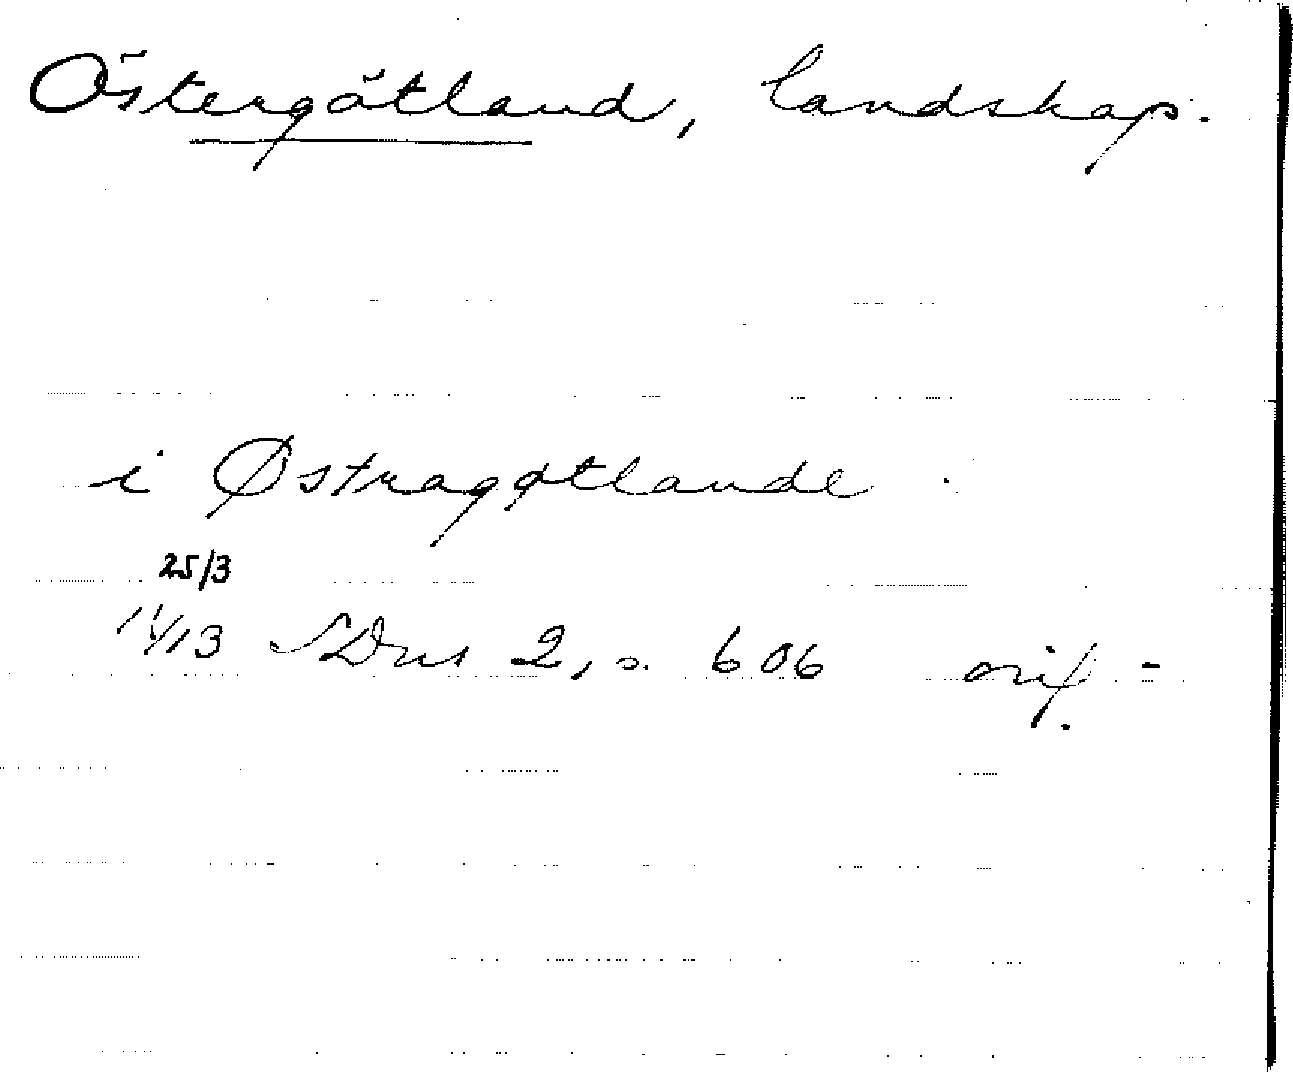 Östergötland, landskap.
i Østragøtlande
25/3
SDns 2, s. 606 orig.